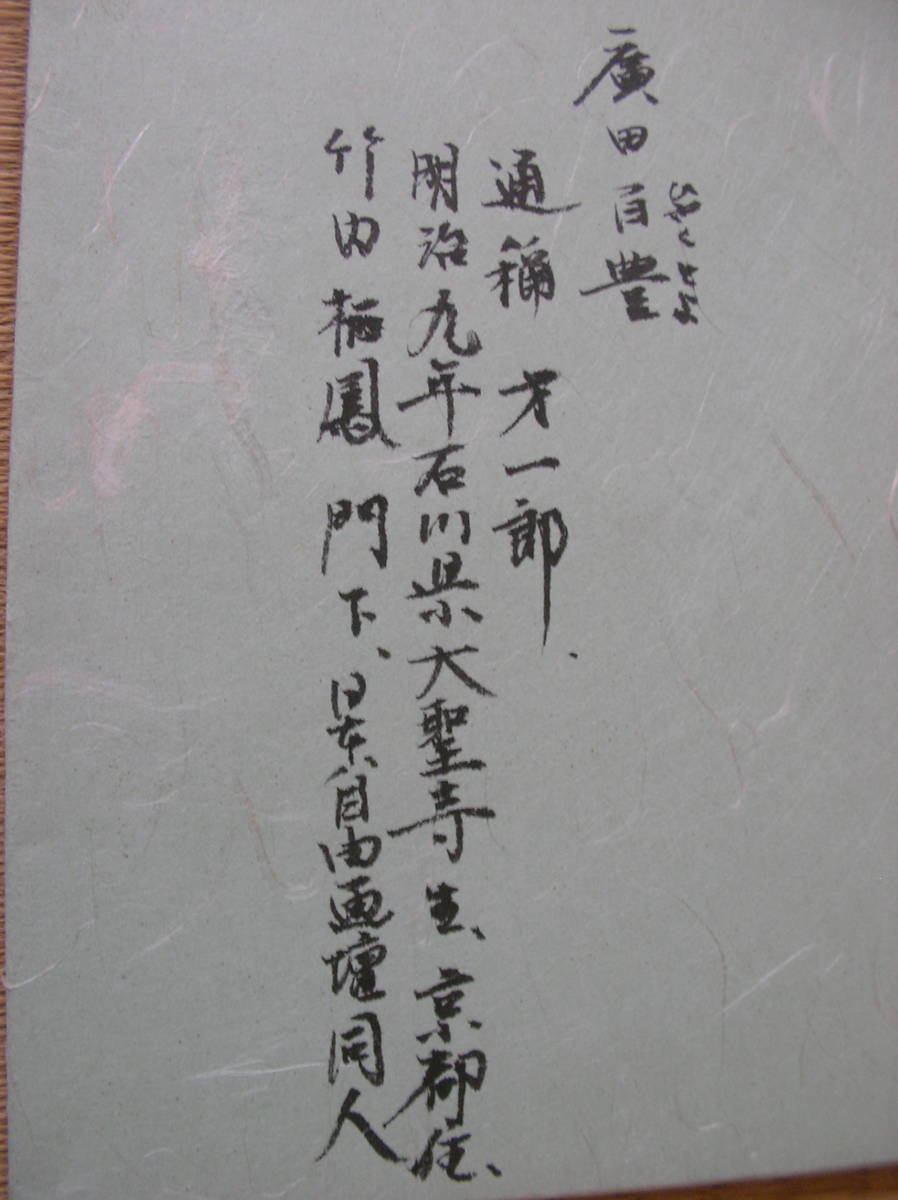 廣田百豊
ひゃくほう
通稱 才一郎.
明治九年石川県大聖寺生、京都住、
竹内栖鳳門下、日本自由画壇同人